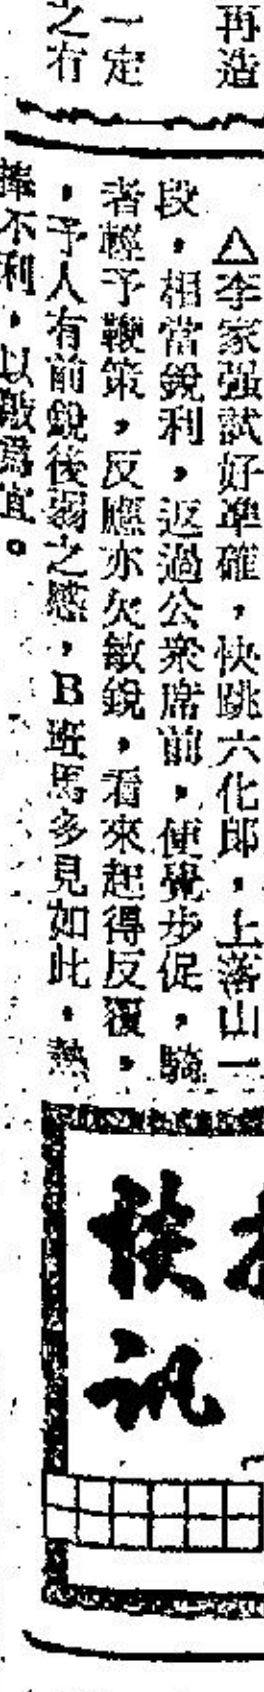 再造
一定
之冇
△李家強試好準確，快跳六化郎，上落山一
段，相當銳利，返過公衆席前，便覺步促，騎
者輕予鞭策，反應亦欠敏銳，看來起得反覆，
，予人有前銳後弱之感，B班馬多見如此，熱
捧不利，以敲爲宜。
訊